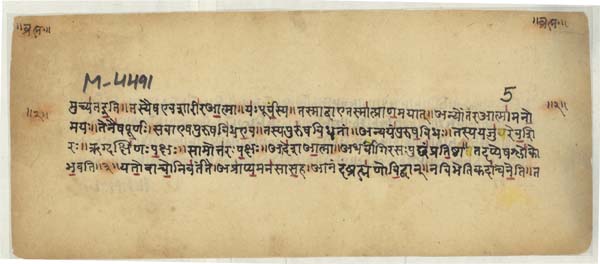 ॥ब्रह्म॥ ॥ब्रह्म॥
M-4491
5
मुच्यतइति॥तस्यैषएवशारीरआत्मा॥यःपूर्वस्य॥तस्माद्वाएतस्मात्प्राणमयात्॥अन्योंतरआत्मामनो
॥२॥ मयः॥तेनैषपूर्णः॥सवाएषपुरुषविधएव॥तस्यपुरुषविधतां॥अन्वयंपुरुषविधः॥तस्ययजुरेवशि ॥२॥
रः॥ऋग्दक्षिणःपक्षः॥सामोत्तरःपक्षः॥आदेशआत्मा॥अथर्वांगिरसःपुछंप्रतिष्ठा॥तदप्येषश्लोको
भवति॥३॥यतोवाचोनिवर्तंते॥अप्राप्यमनसासह॥आनंदंब्रह्मणोविद्वान्॥नबिभेतिकदाचनेति॥त